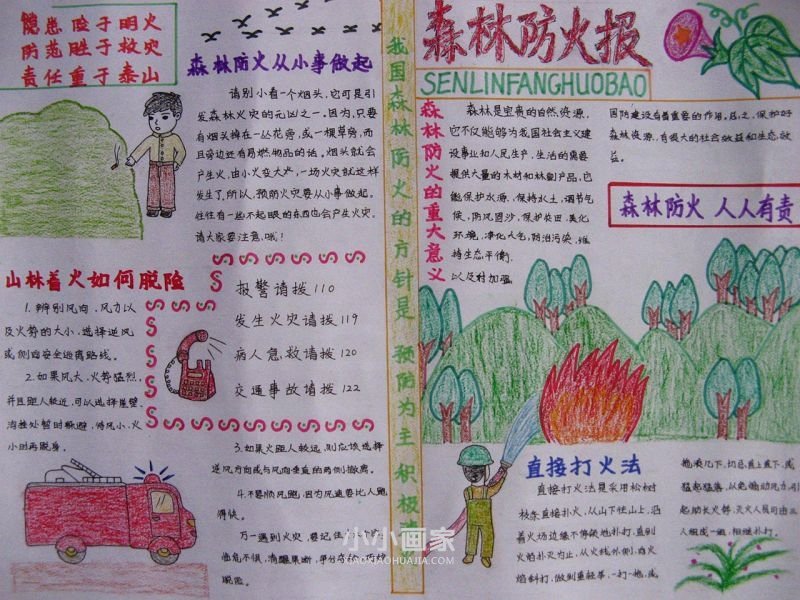 隐患险于明火
防范胜于救灾
责任重于泰山
森林防火从小事做起
请别小看一个烟头,它可是引
发森林火灾的元凶之一。因为,只要
有烟头掉在一丛花旁,或一棵草旁,而
且旁边还有易燃物品的话,烟头就会
产生火,由小火变大火,一场火灾就这样
发生了,所以,预防火灾要从小事做起。
往往有一些不起眼的东西也会产生火灾。
请大家要注意,哦!
山林着火如何脱险
1.辨别风向、风力以
及火势的大小,选择逆风
或侧面安全逃离路线。
2.如果风大,火势猛烈,
并且距人较近,可以选择崖壁、
沟洼处暂时躲避,待风小、火
小时再脱身。
报警请拨110
发生火灾请拨119
病人急救请拨120
交通事故请拨122
3.如果火距人较远,则应该选择
逆风方向或与风向垂直的两侧撤离。
4.不要顺风跑,因为风速要比人跑
得快。
万一遇到火灾,要记住
临危不惧,清醒果断,争分夺秒
脱险。
我国森林防火的方针是 预防为主积极
森林防火报
SENLINFANGHUOBAO
森林防火的重大意义
森林是宝贵的自然资源,
它不仅能够为我国社会主义建
设事业和人民生产、生活的需要
提供大量的木材和林副产品,它
能保护水源、保持水土、调节气
候、防风固沙、保护农田、美化
环境、净化大气、防治污染、维
持生态平衡,
以及对加强
国防建设有着重要的作用。总之,保护好
森林资源,有很大的社会效益和生态效
益。
森林防火 人人有责
直接打火法
直接打火法是采用松树
枝条直接扑火,从山下往山上,沿
着火场边缘不停顿地扑打,直到
火焰扑灭为止,从火线外侧,向火
焰斜打,做到重轻举,一打一拖,或
拖滚几下,切忌直上直下,或
猛起猛落,以免煽动风力,引
起助长火锋。灭火人员可由三
人组成一组,相继扑打。
小小画家
XIAOXIAOHUAJIA.COM